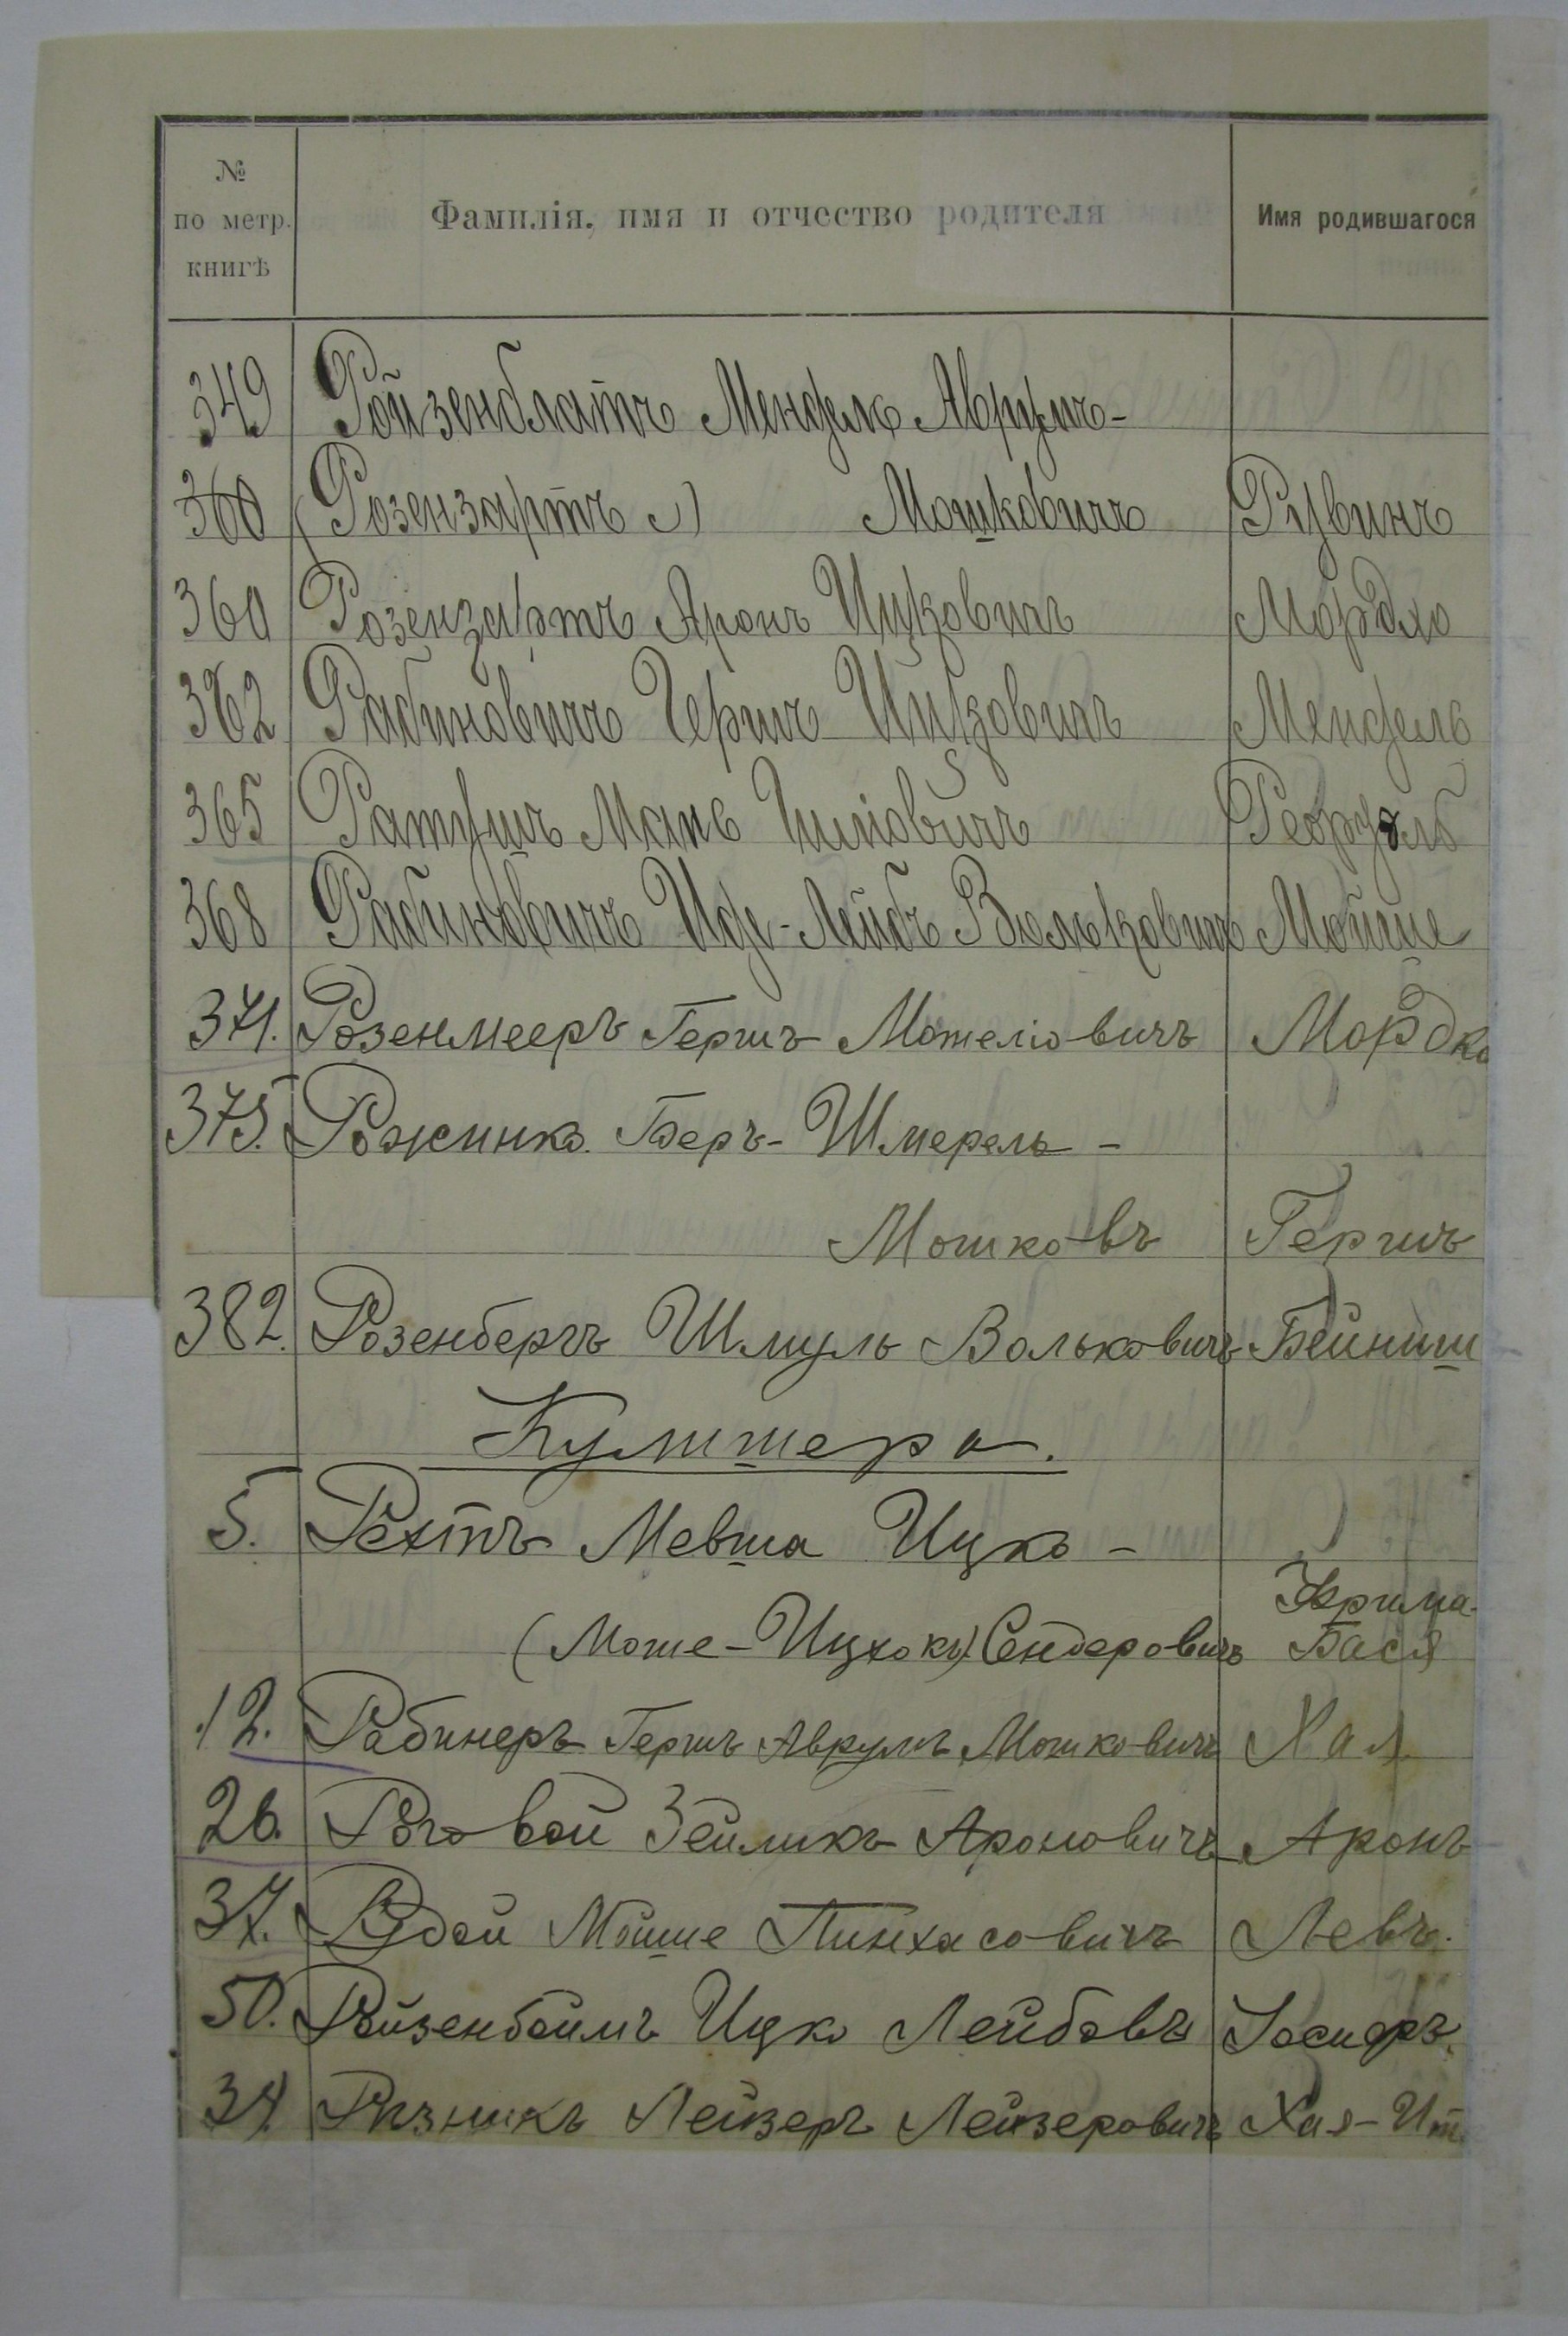 №
по метр.
книгѣ
Фамилія, имя и отчество родителя
Имя родившагося
349 Ройзенблатъ Мендель Аврум-
360 (Розензафтъ) Мошковичъ Рувинъ
360 Розензафтъ Аронъ Ицковичъ Мордко
362 Рабиновичъ Гершъ Ицковичъ Мендель
365 Ратушъ
368 Рабиновичъ Иде-Лейбъ Вольковичъ Мойше
371. Розенмееръ Гершъ Мотеліовичъ Мордко
375. Рожинко Беръ-Шмерель-
Мошковъ Гершъ
382. Розенбергъ Шмуль Вольковичъ Бейниш
5. Рехтъ Мевша Ицко-
Фрима-
(Моше-Ицхокъ) Сендеровичъ Бася
12. Рабинеръ Гершъ Аврумъ Мошковичъ Хая
26. Роговой Зейликъ Ароновичъ Аронъ
37. Рудой Мойше Пинхасовичъ Левъ.
50. Ройзенбоймъ Ицко Лейбовъ Іосифъ.
34. Рѣзникъ Лейзеръ Лейзеровичъ Хая-Ит